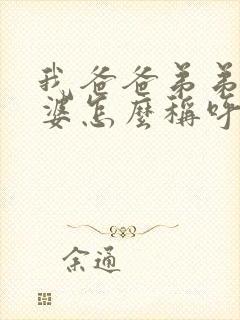 我爸爸弟弟
婆怎麼稱呼
余通